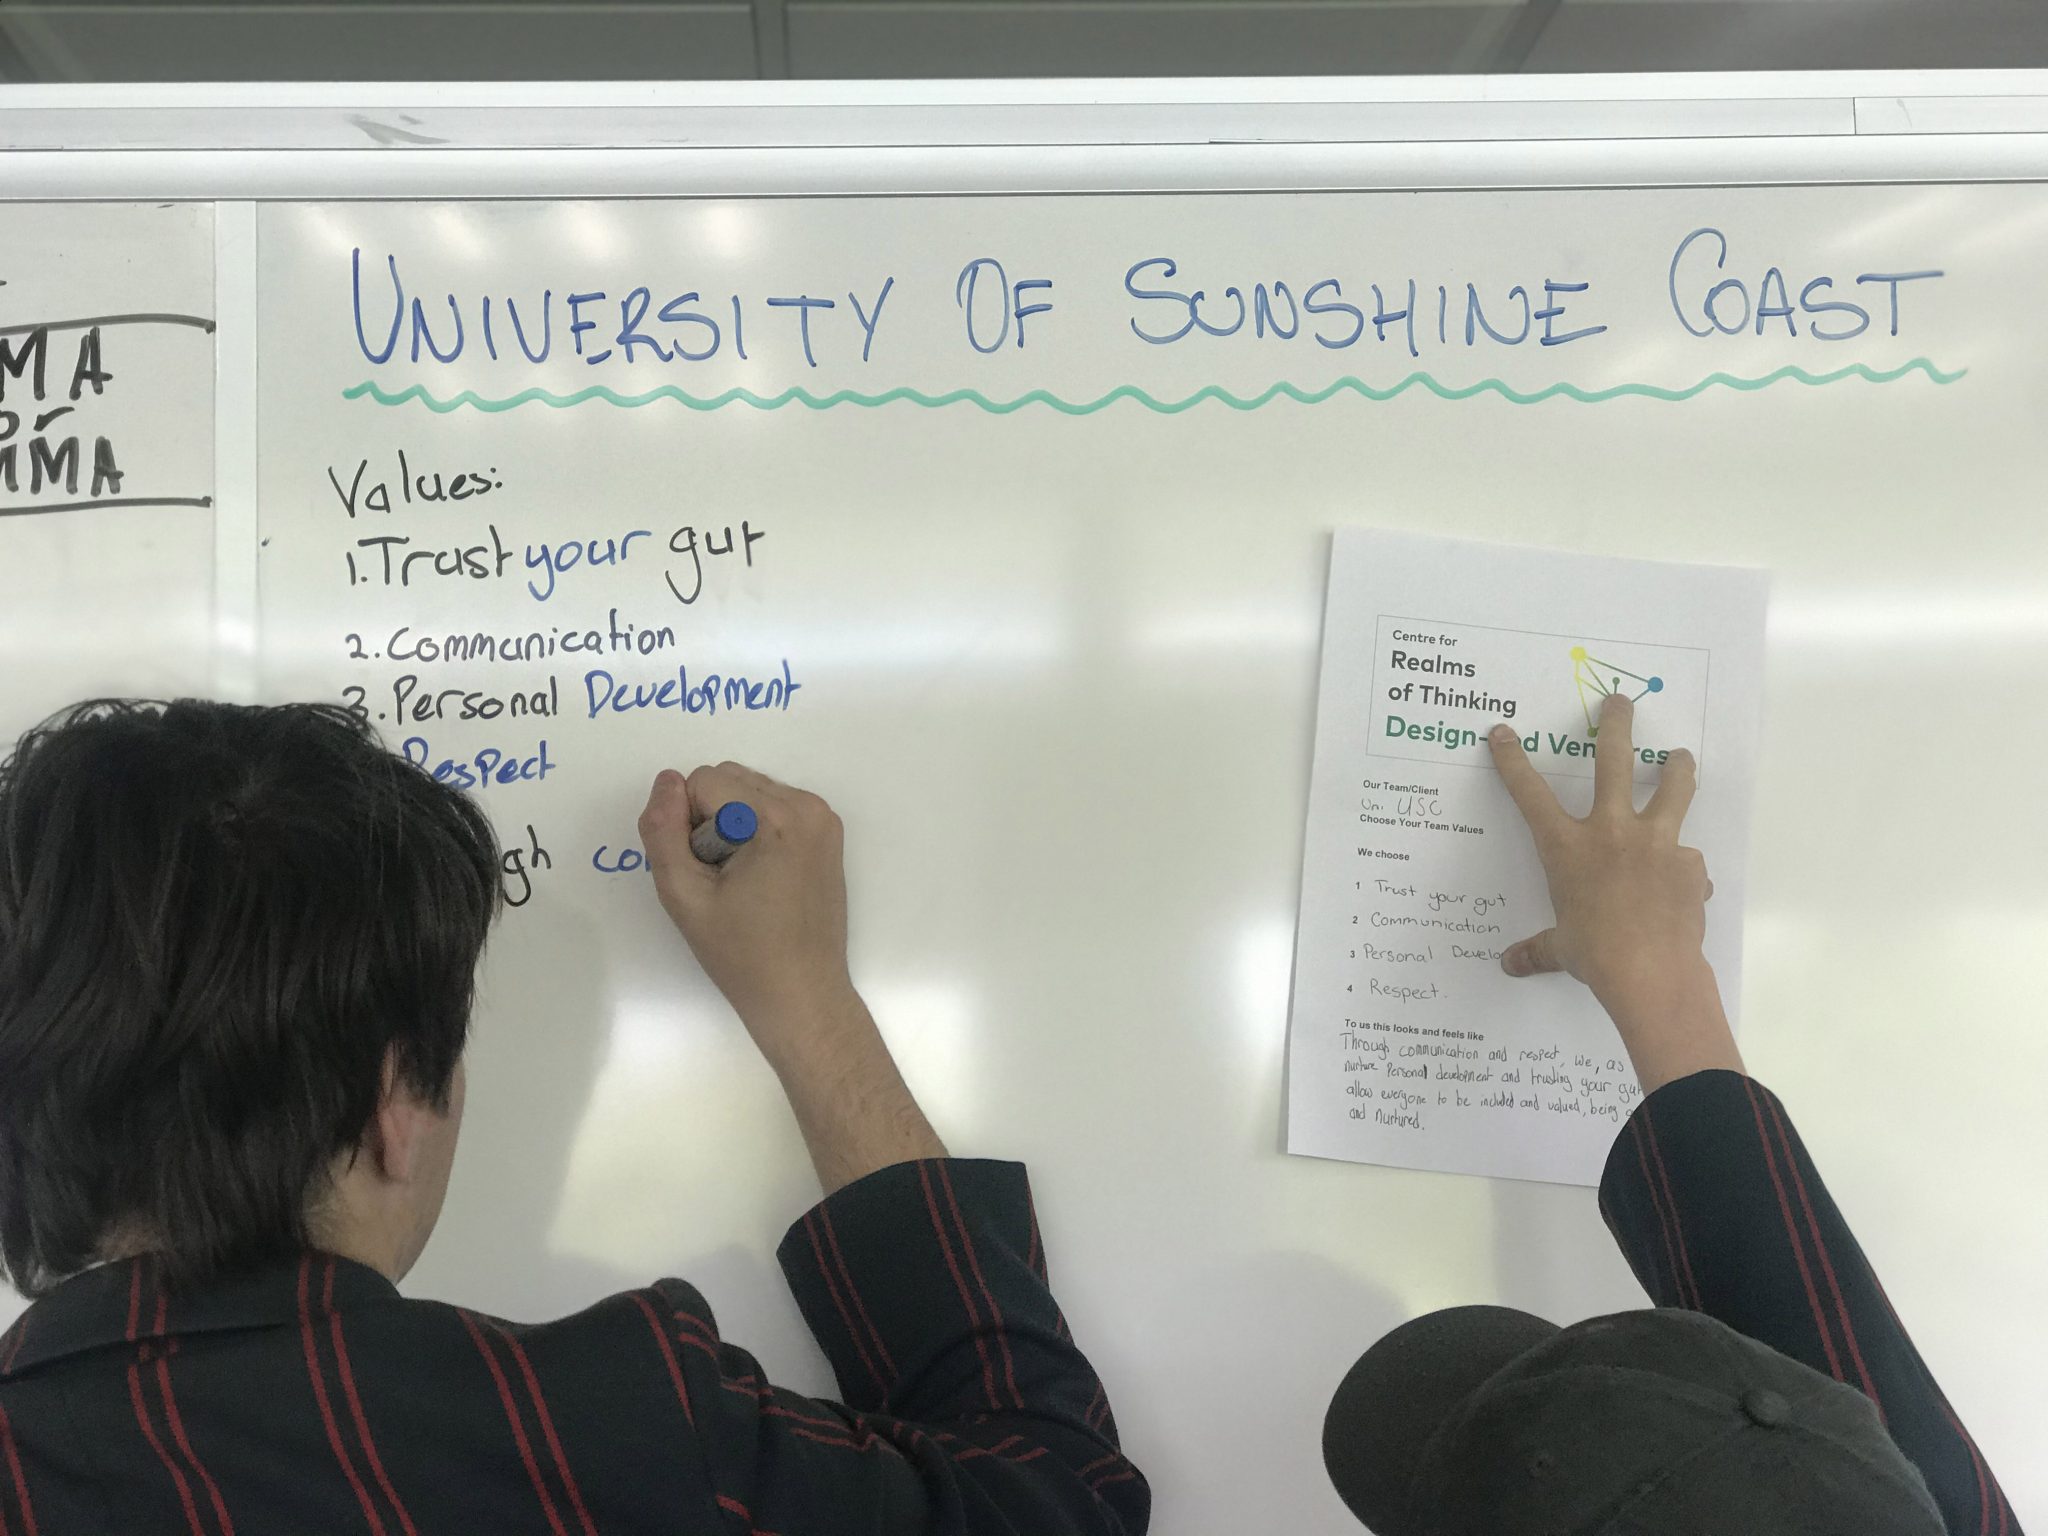 UNIVERSITY OF SUNSHINE COAST
MA
or
MMA
Values:
1. Trust your gut
2. Communication
3. Personal Development
Respect
gh co
Centre for
Realms
of Thinking
Design-
Our Team/Client
Uni USC
Choose Your Team Values
We choose
1 Trust your gut
2 Communication
3 Personal Develo
4 Respect.
To us this looks and feels like
Through communication and respect, we, as
nurture personal development and trusting your gut
allow everyone to be included and valued, being
and nurtured.